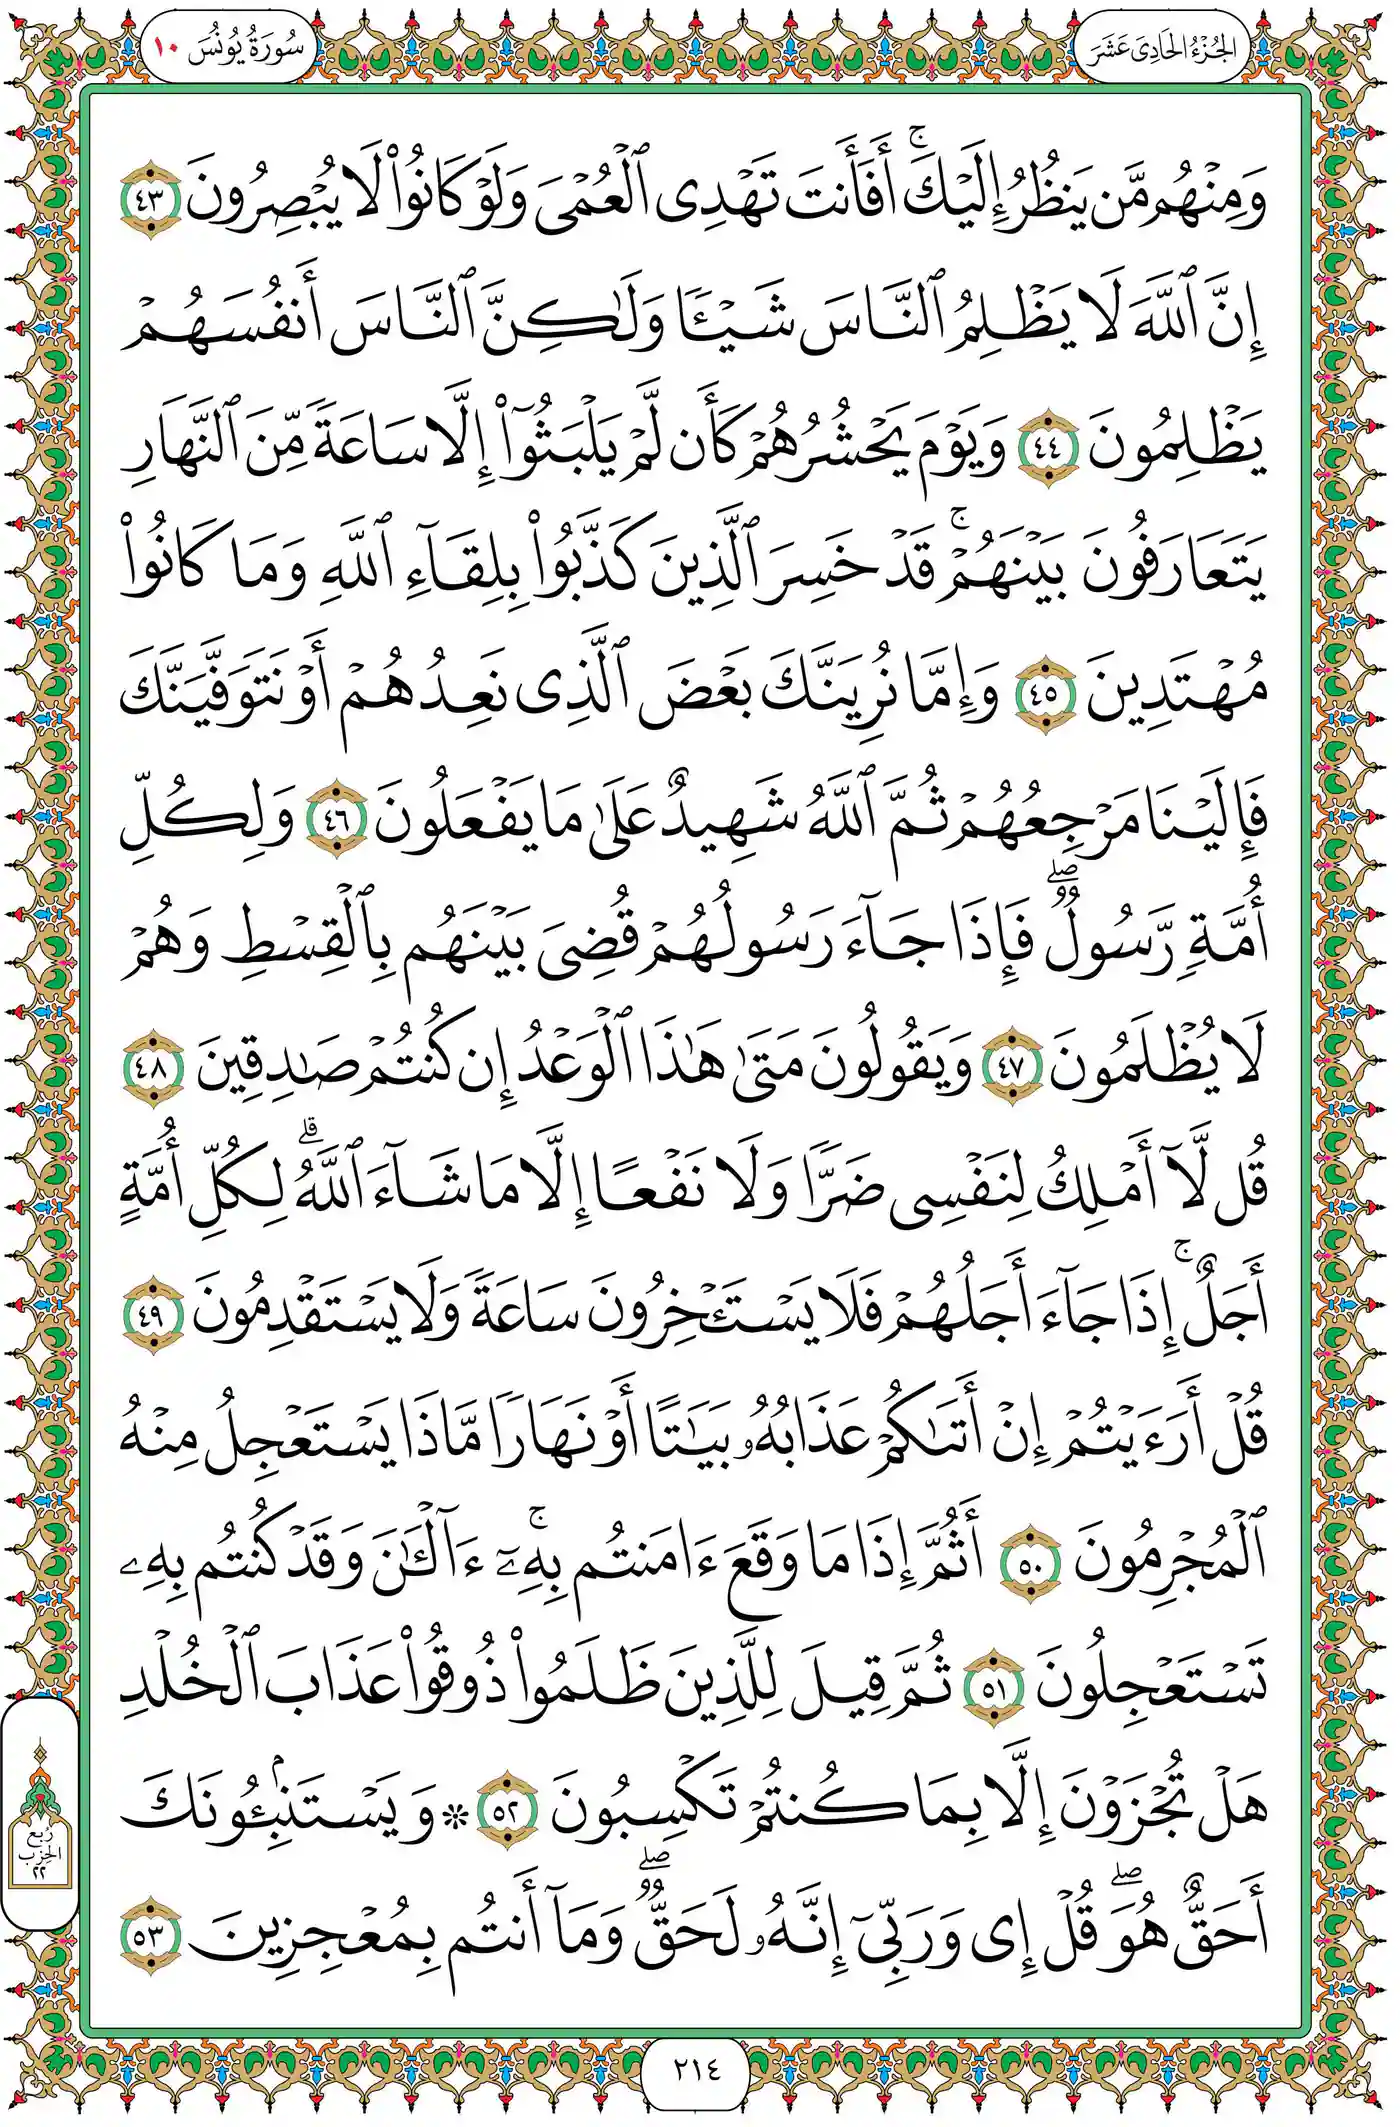 الجُزْءُ الحَادِيَ عَشَرَ
سُورَةُ يُونُسَ ١٠
وَمِنْهُم مَّن يَنظُرُ إِلَيْكَ ۚ أَفَأَنتَ تَهْدِى ٱلْعُمْىَ وَلَوْ كَانُوا۟ لَا يُبْصِرُونَ ٤٣
إِنَّ ٱللَّهَ لَا يَظْلِمُ ٱلنَّاسَ شَيْـًٔا وَلَـٰكِنَّ ٱلنَّاسَ أَنفُسَهُمْ
يَظْلِمُونَ ٤٤ وَيَوْمَ يَحْشُرُهُمْ كَأَن لَّمْ يَلْبَثُوٓا۟ إِلَّا سَاعَةً مِّنَ ٱلنَّهَارِ
يَتَعَارَفُونَ بَيْنَهُمْ ۚ قَدْ خَسِرَ ٱلَّذِينَ كَذَّبُوا۟ بِلِقَآءِ ٱللَّهِ وَمَا كَانُوا۟
مُهْتَدِينَ ٤٥ وَإِمَّا نُرِيَنَّكَ بَعْضَ ٱلَّذِى نَعِدُهُمْ أَوْ نَتَوَفَّيَنَّكَ
فَإِلَيْنَا مَرْجِعُهُمْ ثُمَّ ٱللَّهُ شَهِيدٌ عَلَىٰ مَا يَفْعَلُونَ ٤٦ وَلِكُلِّ
أُمَّةٍ رَّسُولٌ ۖ فَإِذَا جَآءَ رَسُولُهُمْ قُضِىَ بَيْنَهُم بِٱلْقِسْطِ وَهُمْ
لَا يُظْلَمُونَ ٤٧ وَيَقُولُونَ مَتَىٰ هَـٰذَا ٱلْوَعْدُ إِن كُنتُمْ صَـٰدِقِينَ ٤٨
قُل لَّآ أَمْلِكُ لِنَفْسِى ضَرًّا وَلَا نَفْعًا إِلَّا مَا شَآءَ ٱللَّهُ ۗ لِكُلِّ أُمَّةٍ
أَجَلٌ ۚ إِذَا جَآءَ أَجَلُهُمْ فَلَا يَسْتَـْٔخِرُونَ سَاعَةً وَلَا يَسْتَقْدِمُونَ ٤٩
قُلْ أَرَءَيْتُمْ إِنْ أَتَىٰكُمْ عَذَابُهُۥ بَيَـٰتًا أَوْ نَهَارًا مَّاذَا يَسْتَعْجِلُ مِنْهُ
ٱلْمُجْرِمُونَ ٥٠ أَثُمَّ إِذَا مَا وَقَعَ ءَامَنتُم بِهِۦٓ ۚ ءَآلْـَٔـٰنَ وَقَدْ كُنتُم بِهِۦ
تَسْتَعْجِلُونَ ٥١ ثُمَّ قِيلَ لِلَّذِينَ ظَلَمُوا۟ ذُوقُوا۟ عَذَابَ ٱلْخُلْدِ
هَلْ تُجْزَوْنَ إِلَّا بِمَا كُنتُمْ تَكْسِبُونَ ٥٢ * وَيَسْتَنۢبِـُٔونَكَ
أَحَقٌّ هُوَ ۖ قُلْ إِى وَرَبِّىٓ إِنَّهُۥ لَحَقٌّ ۖ وَمَآ أَنتُم بِمُعْجِزِينَ ٥٣
رُبع
الحِزب
٢٢
٢١٤